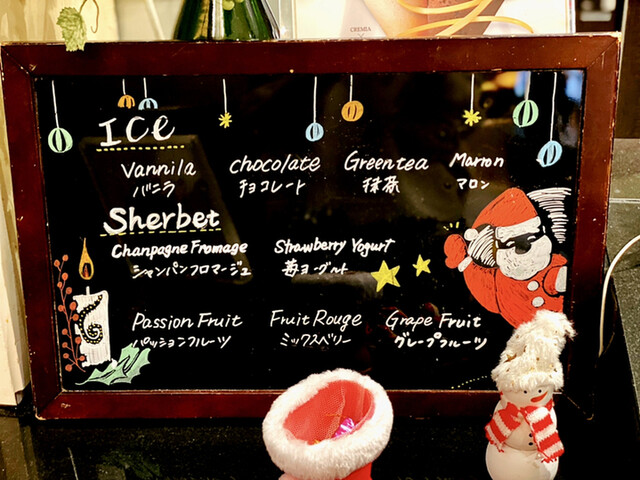 CREMIA
Ice
Vannila chocolate Greentea Marron
バニラ チョコレート 抹茶 マロン
Sherbet
Chanpagne Fromage Strawberry Yogurt
シャンパンフロマージュ 苺ヨーグルト
Passion Fruit Fruit Rouge Grape Fruit
パッションフルーツ ミックスベリー グレープフルーツ